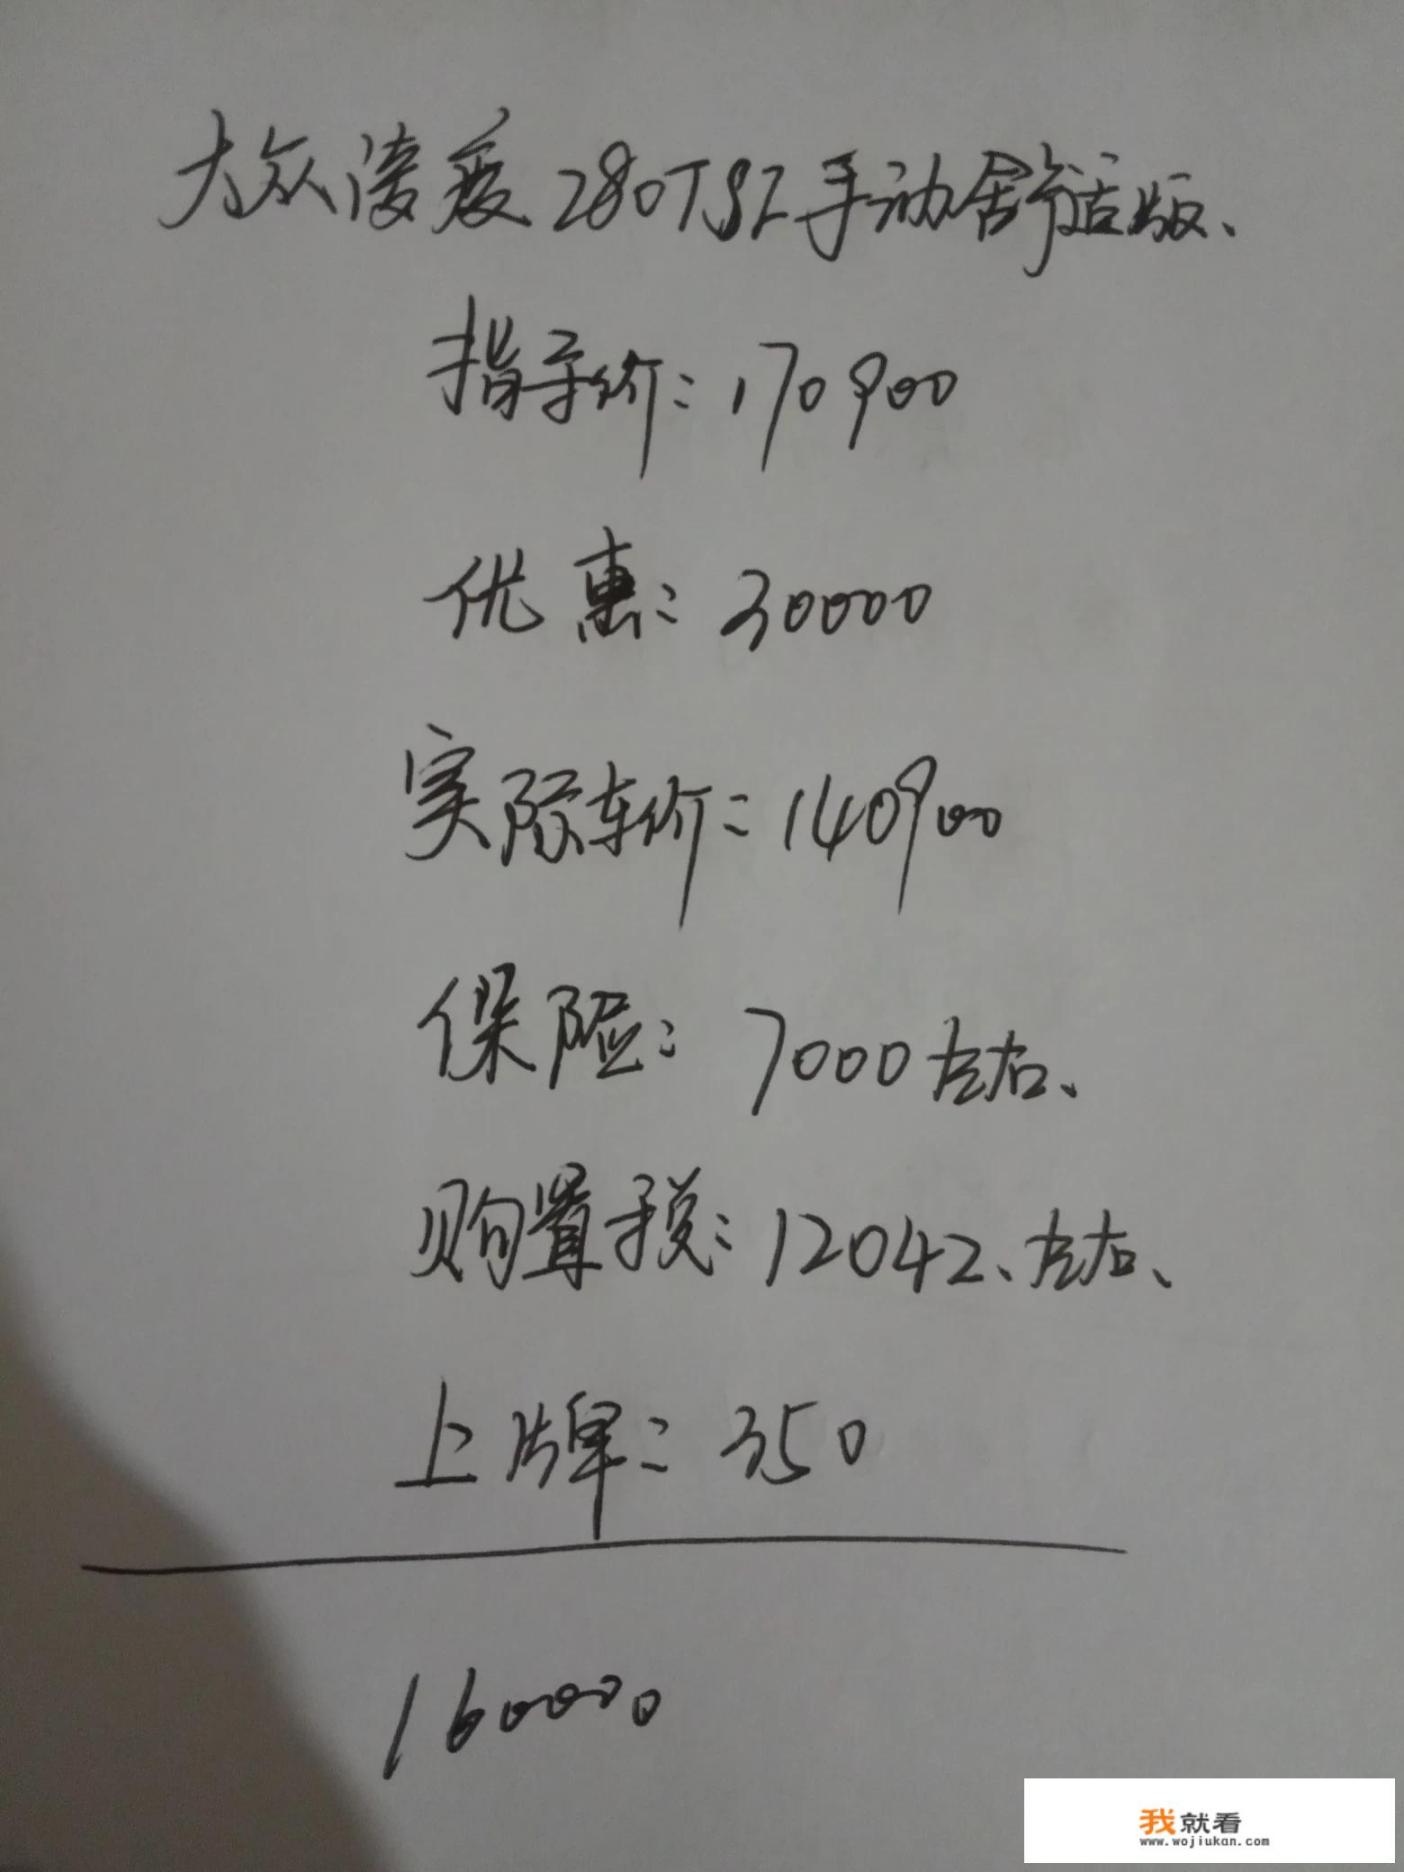 大众凌度280TSI手动舒适版、
指导价：170900
优惠：30000
实际车价：140900
保险：7000左右、
购置税：12042、左右、
上牌：350
160000
我就看
www.wojiukan.com